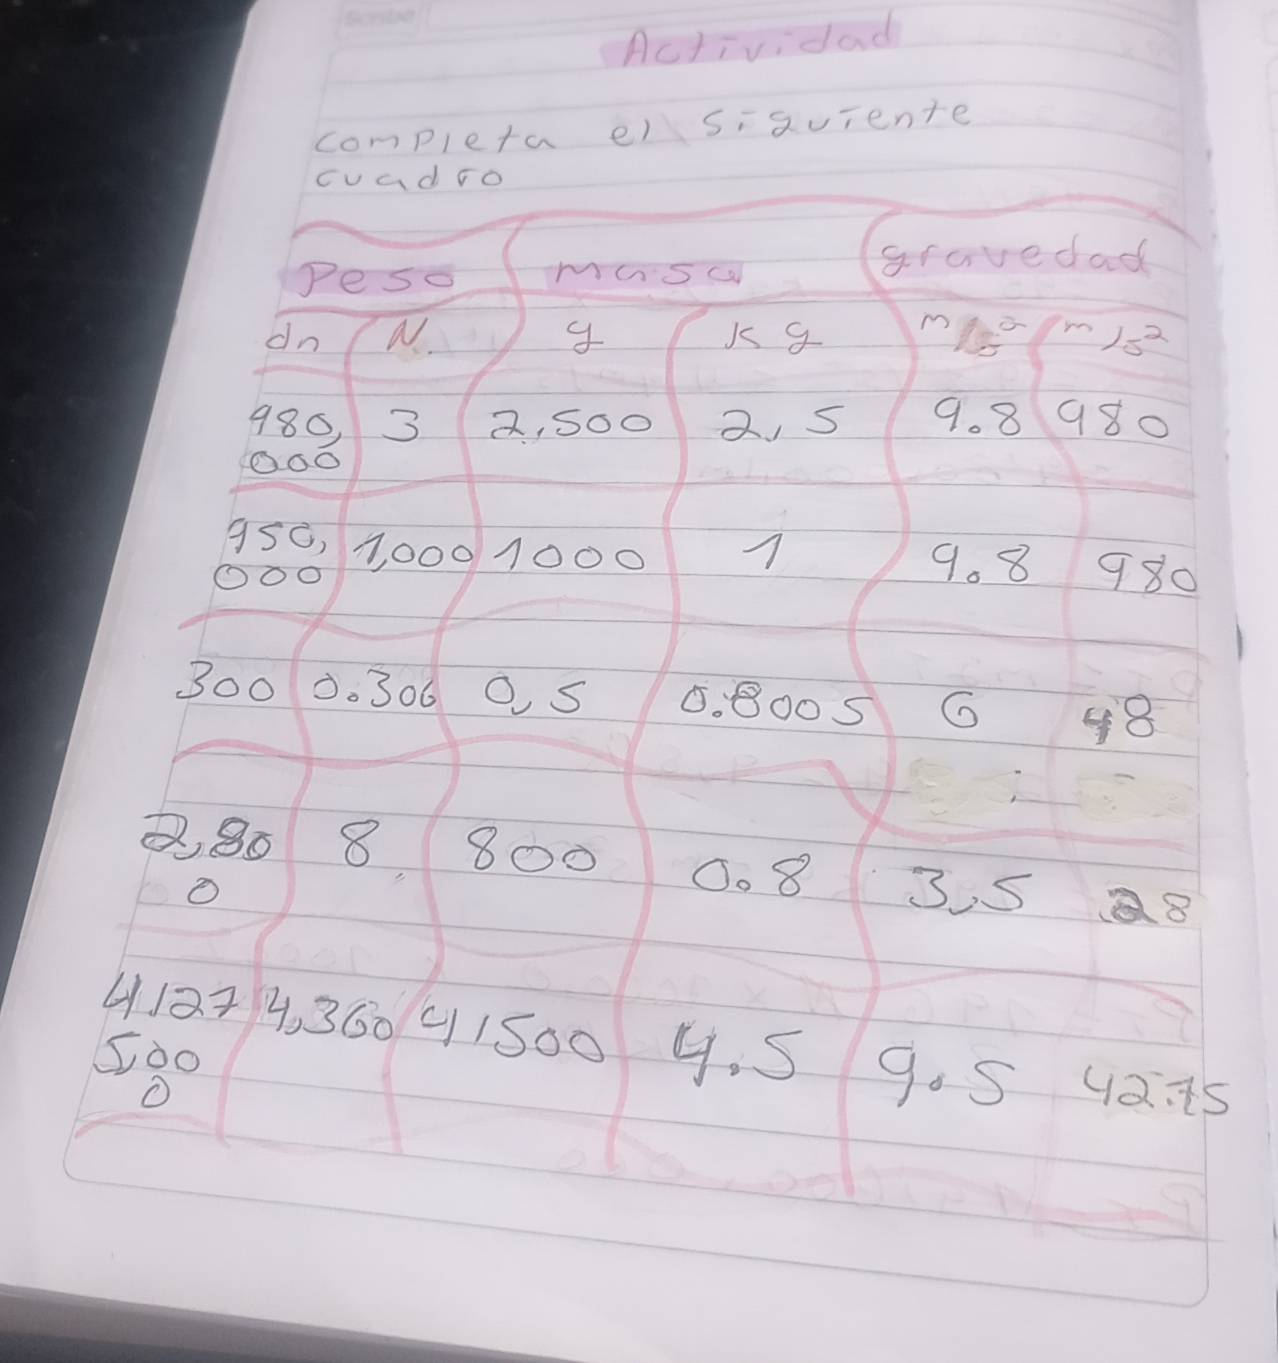 Scribe
Actividad
completa el siguiente
cuadro
Peso masa gravedad
dn N. g kg m/s² m/s²
980, 3 2,500 2,5 9.8 980
000
950, 1,000 1000 1 9.8 980
000
300 0.306 0,5 0.8005 6 48
2,80 8 800 0.8 3,5 28
0
4127 4,360 41500 4.5 9.5 42.75
5,00
0